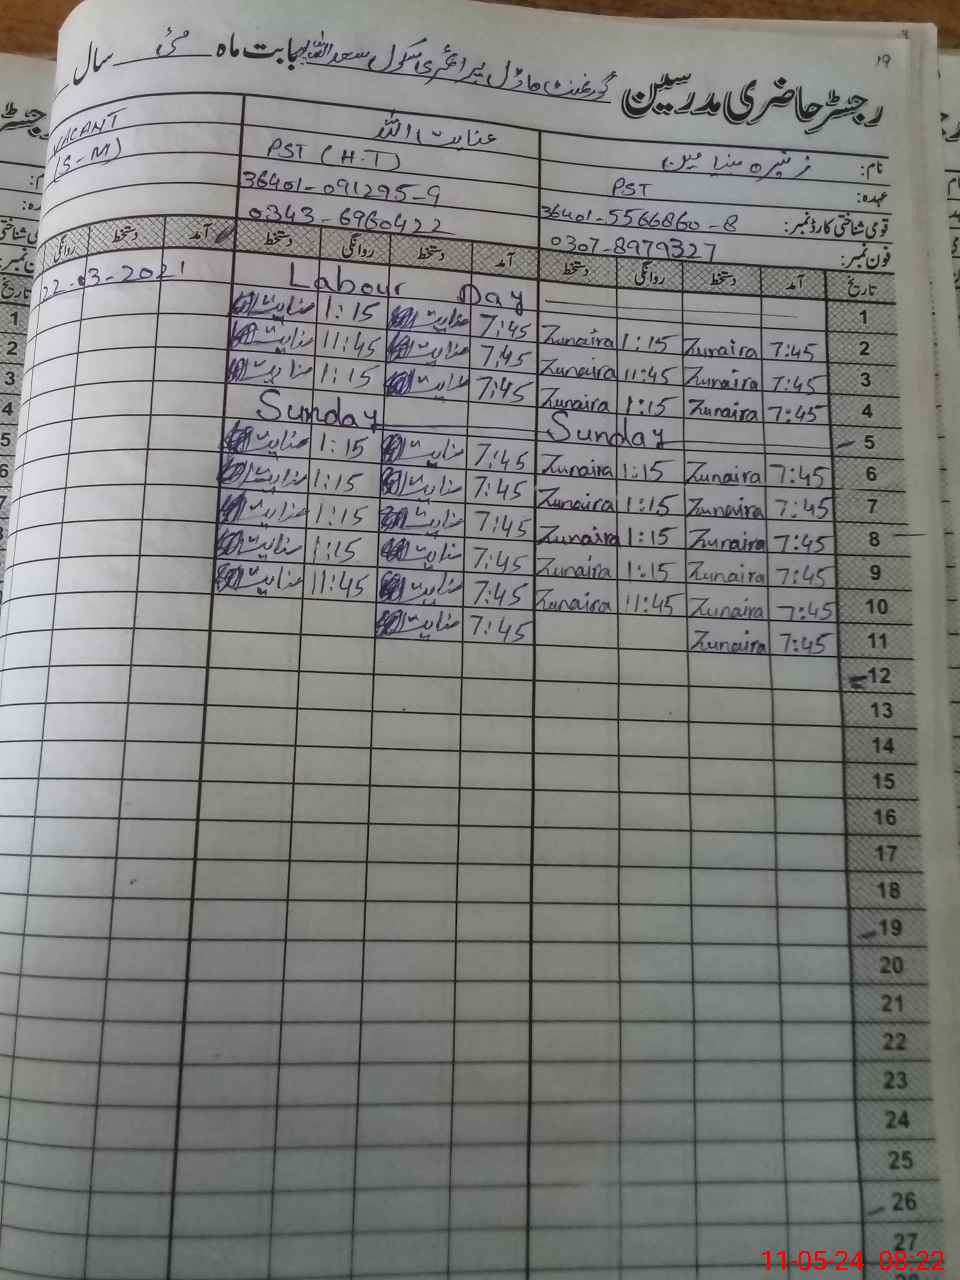 ۱۹
رجسٹر حاضری مدرسین گورنمنٹ ماڈل پرائمری سکول سعد اللہ پور بابت ماہ مئی سال
نام: زنیرہ بنیامین عنایت اللہ VACANT
عہدہ: PST PST (H.T) (S-M)
قومی شناختی کارڈ نمبر: 36401-5566860-8 36401-091295-9
فون نمبر: 0307-8979327 0343-6960422
تاریخ آمد دستخط روانگی دستخط آمد دستخط روانگی دستخط آمد دستخط روانگی
1 Labour Day 22-03-2021
2 7:45 Zunaira 1:15 Zunaira 7:45 عنایت اللہ 1:15 عنایت اللہ
3 7:45 Zunaira 11:45 Zunaira 7:45 عنایت اللہ 11:45 عنایت اللہ
4 7:45 Zunaira 1:15 Zunaira 7:45 عنایت اللہ 1:15 عنایت اللہ
5 Sunday Sunday
6 7:45 Zunaira 1:15 Zunaira 7:45 عنایت اللہ 1:15 عنایت اللہ
7 7:45 Zunaira 1:15 Zunaira 7:45 عنایت اللہ 1:15 عنایت اللہ
8 7:45 Zunaira 1:15 Zunaira 7:45 عنایت اللہ 1:15 عنایت اللہ
9 7:45 Zunaira 1:15 Zunaira 7:45 عنایت اللہ 1:15 عنایت اللہ
10 7:45 Zunaira 11:45 Zunaira 7:45 عنایت اللہ 11:45 عنایت اللہ
11 7:45 Zunaira 7:45 عنایت اللہ
12
13
14
15
16
17
18
19
20
21
22
23
24
25
26
27
11-05-24 08:22